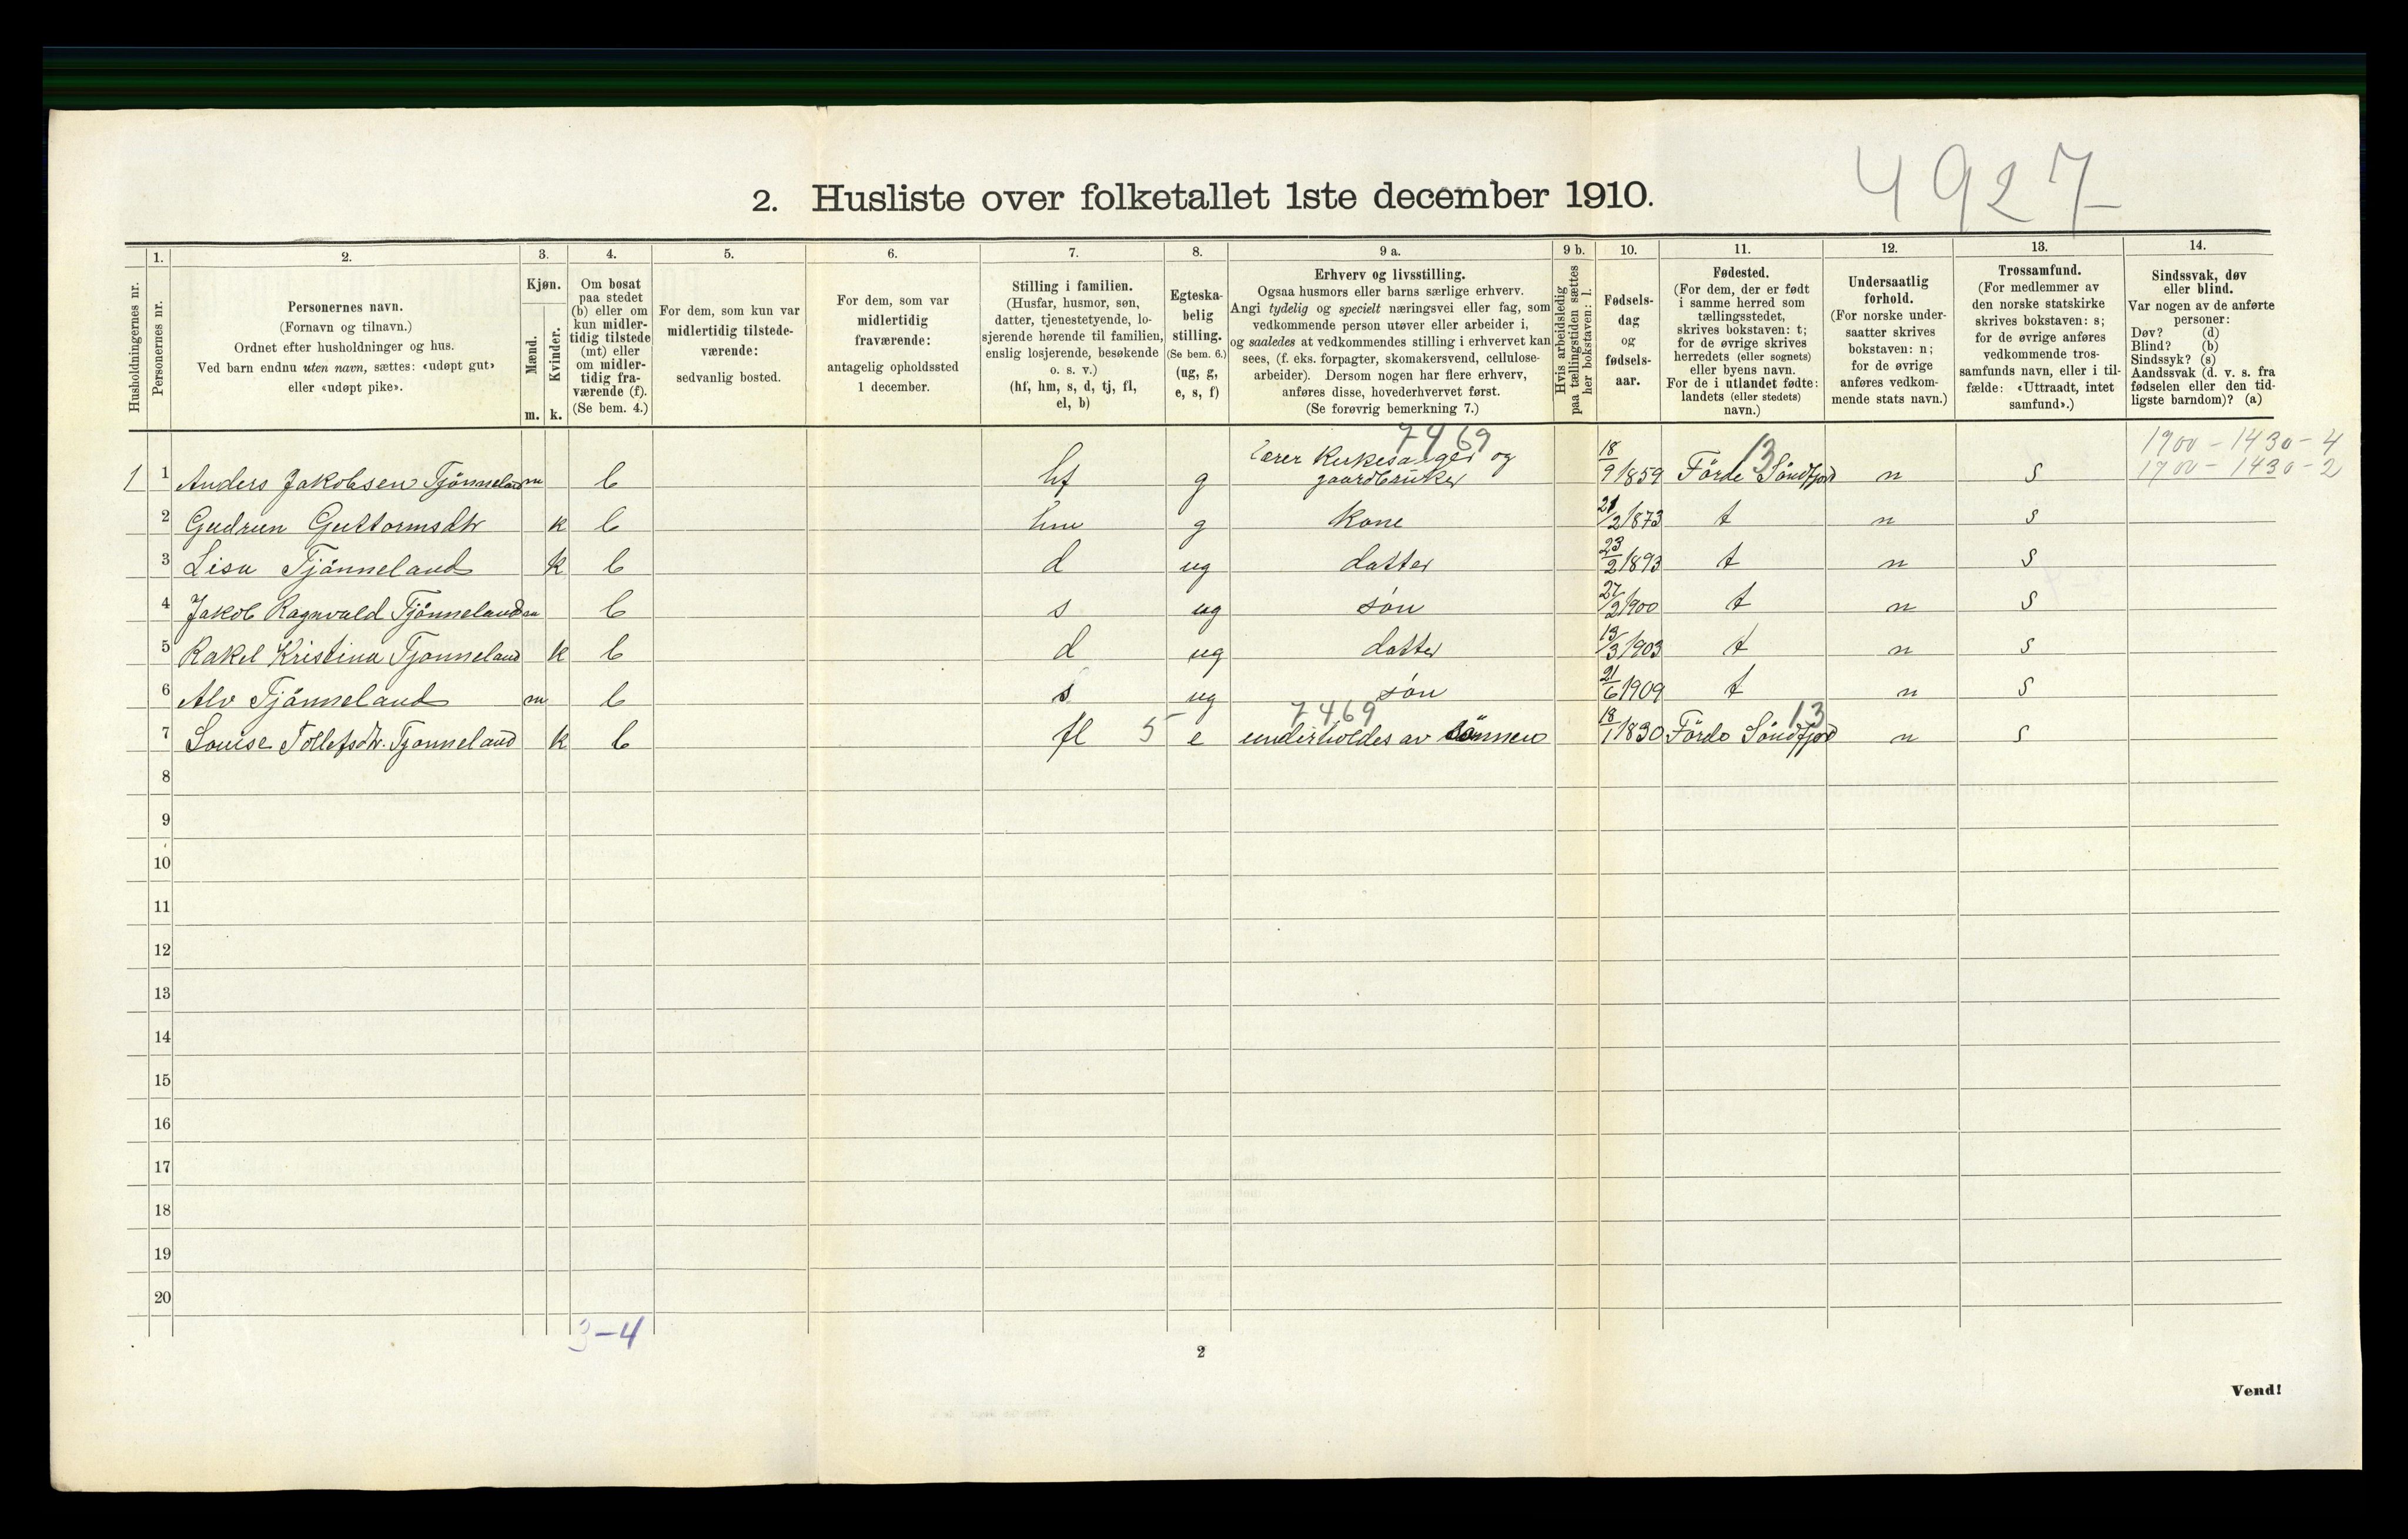 4927
2. Husliste over folketallet 1ste december 1910.
Husholdningernes nr.
1.
Personernes nr.
2.
Personernes navn.
(Fornavn og tilnavn.)
Ordnet efter husholdninger og hus.
Ved barn endnu uten navn, sættes: «udøpt gut»
eller «udøpt pike».
3.
Kjøn.
Mænd.
Kvinder.
m. k.
4.
Om bosat
paa stedet
(b) eller om
kun midler-
tidig tilstede
(mt) eller
om midler-
tidig fra-
værende (f).
(Se bem. 4.)
5.
For dem, som kun var
midlertidig tilstede-
værende:
sedvanlig bosted.
6.
For dem, som var
midlertidig
fraværende:
antagelig opholdssted
1 december.
7.
Stilling i familien.
(Husfar, husmor, søn,
datter, tjenestetyende, lo-
sjerende hørende til familien,
enslig losjerende, besøkende
o. s. v.)
(hf, hm, s, d, tj, fl,
el, b)
8.
Egteska-
belig
stilling.
(Se bem. 6.)
(ug, g,
e, s, f)
9 a.
Erhverv og livsstilling.
Ogsaa husmors eller barns særlige erhverv.
Angi tydelig og specielt næringsvei eller fag, som
vedkommende person utøver eller arbeider i,
og saaledes at vedkommendes stilling i erhvervet kan
sees, (f. eks. forpagter, skomakersvend, cellulose-
arbeider). Dersom nogen har flere erhverv,
anføres disse, hovederhvervet først.
(Se forøvrig bemerkning 7.)
9 b.
Hvis arbeidsledig
paa tællingstiden sættes
her bokstaven: l.
10.
Fødsels-
dag
og
fødsels-
aar.
11.
Fødested.
(For dem, der er født
i samme herred som
tællingsstedet,
skrives bokstaven: t;
for de øvrige skrives
herredets (eller sognets)
eller byens navn.
For de i utlandet fødte:
landets (eller stedets)
navn.)
12.
Undersaatlig
forhold.
(For norske under-
saatter skrives
bokstaven: n;
for de øvrige
anføres vedkom-
mende stats navn.)
13.
Trossamfund.
(For medlemmer av
den norske statskirke
skrives bokstaven: s;
for de øvrige anføres
vedkommende tros-
samfunds navn, eller i til-
fælde: «Uttraadt, intet
samfund».)
14.
Sindssvak, døv
eller blind.
Var nogen av de anførte
personer:
Døv? (d)
Blind? (b)
Sindssyk? (s)
Aandssvak (d. v. s. fra
fødselen eller den tid-
ligste barndom)? (a)
7469 13 1900 - 1430 - 4
1 1 Anders Jakobsen Tjönneland m b hf g Lærer Kirkesanger og gaardbruker 18/9 1859 Förde Söndfjord n s 1700 - 1430 - 2
2 Gudrun Guttormsdtr k b hm g Kone 21/2 1873 t n s
3 Lisa Tjönneland k b d ug datter 23/2 1893 t n s
4 Jakob Ragnvald Tjönneland m b s ug sön 27/2 1900 t n s
5 Rakel Kristina Tjonneland k b d ug datter 13/3 1903 t n s
6 Alv Tjönneland m b s ug sön 21/6 1909 t n s
7469 13
7 Louise Tollefsdtr. Tjonneland k b fl 5 e underholdes av sönnen 18/1 1830 Förde Söndfjord n s
8
9
10
11
12
13
14
15
16
17
18
19
20
3-4
2
Vend!